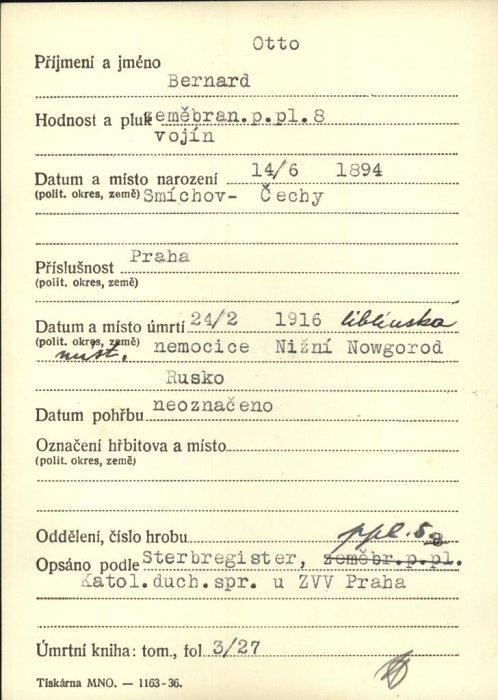 Otto
Příjmení a jméno
Bernard
Hodnost a pluk zeměbran.p.pl.8
vojín
Datum a místo narození 14/6 1894
(polit. okres, země) Smíchov- Čechy
Praha
Příslušnost
(polit. okres, země)
Datum a místo úmrtí 24/2 1916
(polit. okres, země) nemocice Nižní Nowgorod
Rusko
Datum pohřbu neoznačeno
Označení hřbitova a místo
(polit. okres, země)
Oddělení, číslo hrobu ppl. 5
Opsáno podle Sterbregister, zeměbr.p.pl. 8
Katol.duch.spr. u ZVV Praha
Úmrtní kniha: tom., fol 3/27
Tiskárna MNO. — 1163-36.